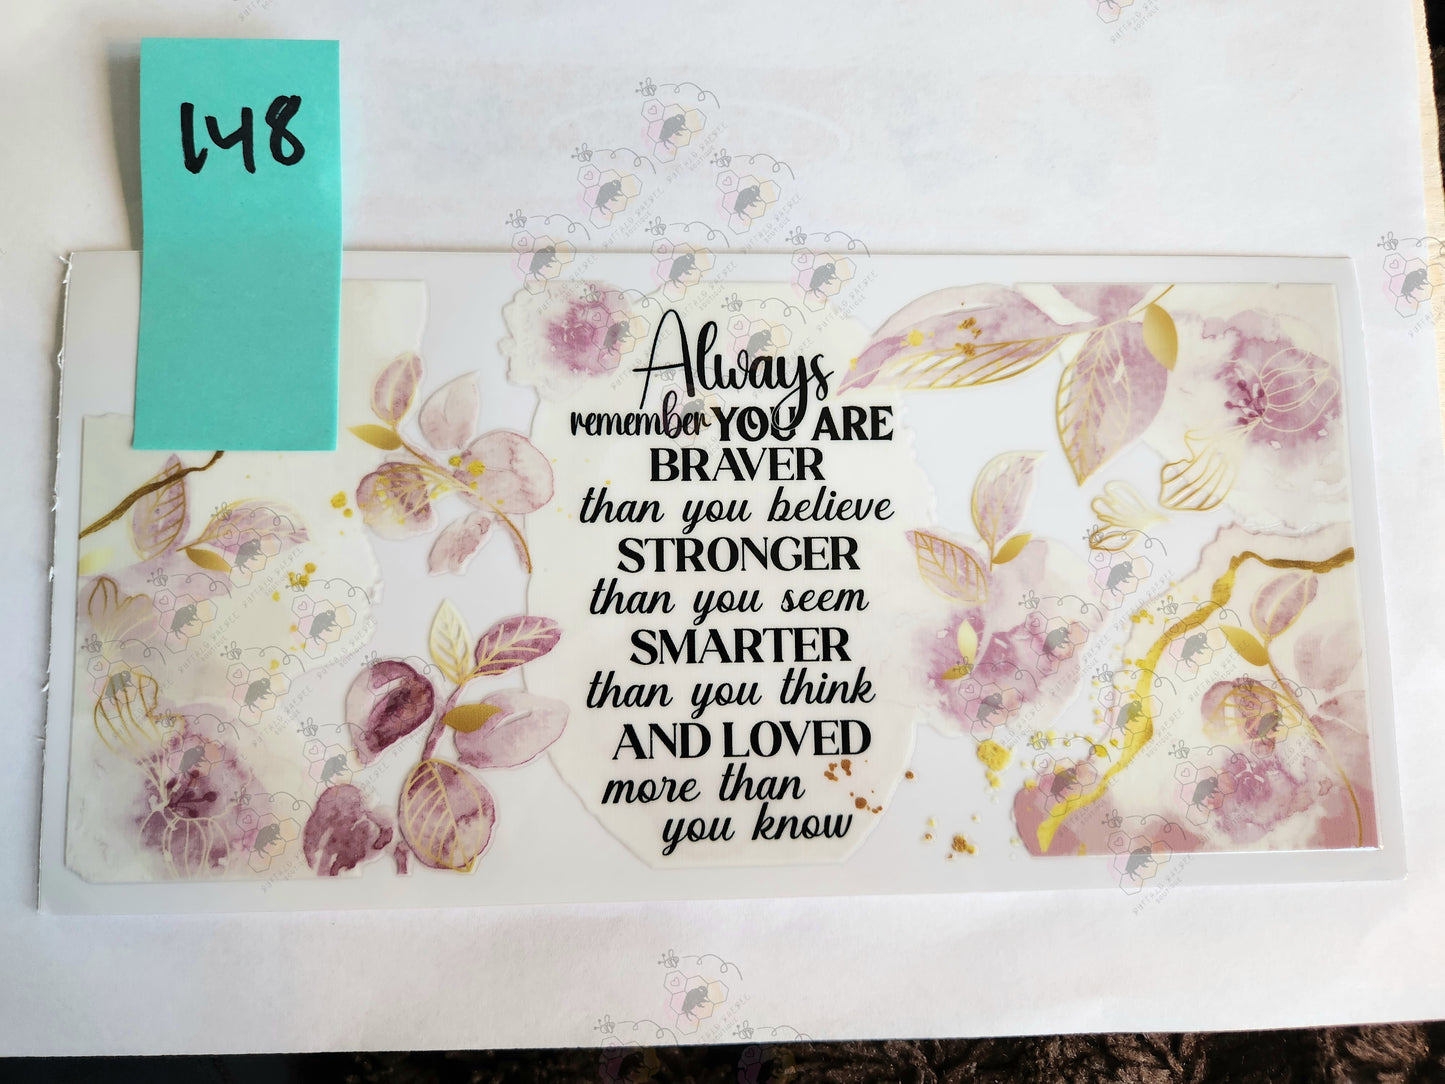 148
Always
remember YOU ARE
BRAVER
than you believe
STRONGER
than you seem
SMARTER
than you think
AND LOVED
more than
you know